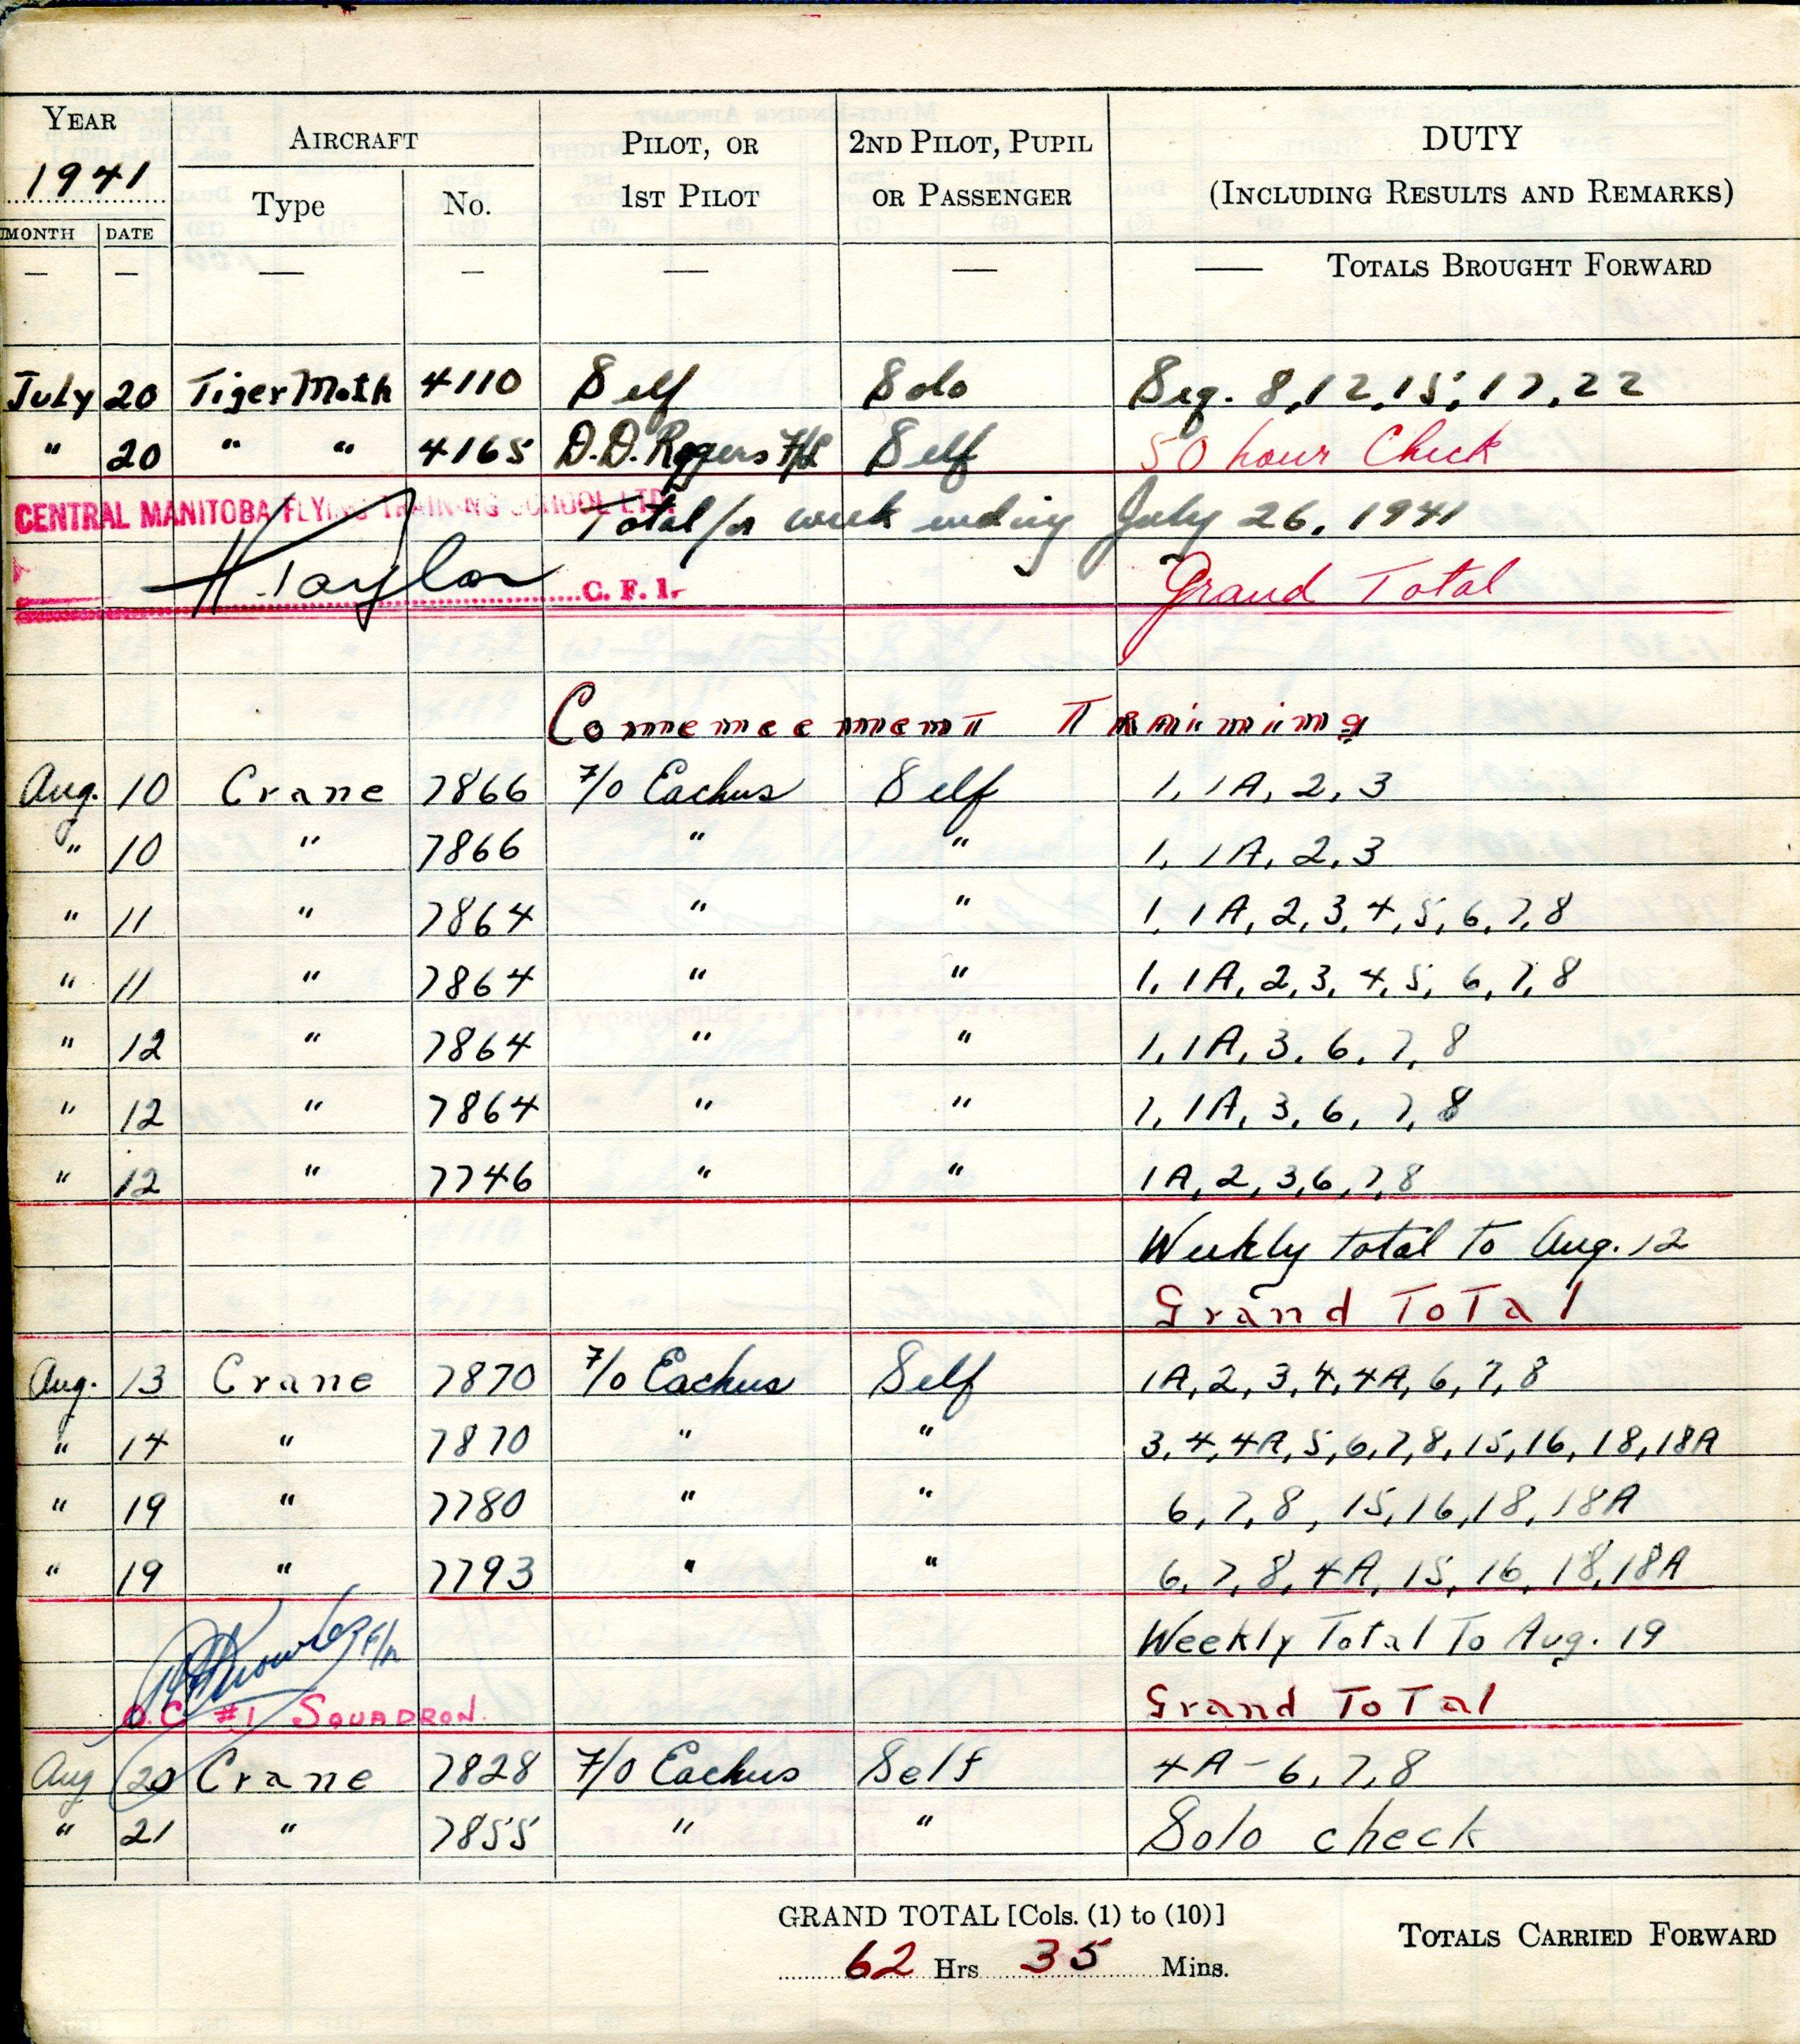 YEAR 1941 AIRCRAFT PILOT, OR 1ST PILOT 2ND PILOT, PUPIL OR PASSENGER DUTY (INCLUDING RESULTS AND REMARKS)
MONTH DATE Type No.
— — — — — — — TOTALS BROUGHT FORWARD
July 20 Tiger Moth 4110 Self Solo Seq. 8, 12, 15, 17, 22
" 20 " " 4165 D.D. Rogers F/L Self 50 hour Check
CENTRAL MANITOBA FLYING TRAINING SCHOOL LTD.
Total for week ending July 26, 1941
H. Taylor C.F.I. Grand Total
Training
Aug. 10 Crane 7866 F/O Eachus Self 1, 1A, 2, 3
" 10 " 7866 " " 1, 1A, 2, 3
" 11 " 7864 " " 1, 1A, 2, 3, 4, 5, 6, 7, 8
" 11 " 7864 " " 1, 1A, 2, 3, 4, 5, 6, 7, 8
" 12 " 7864 " " 1, 1A, 3, 6, 7, 8
" 12 " 7864 " " 1, 1A, 3, 6, 7, 8
" 12 " 7746 " " 1A, 2, 3, 6, 7, 8
Weekly total to Aug. 12
Grand Total
Aug. 13 Crane 7870 F/O Eachus Self 1A, 2, 3, 4, 4A, 6, 7, 8
" 14 " 7870 " " 3, 4, 4A, 5, 6, 7, 8, 15, 16, 18, 18A
" 19 " 7780 " " 6, 7, 8, 15, 16, 18, 18A
" 19 " 7793 " " 6, 7, 8, 4A, 15, 16, 18, 18A
Weekly Total To Aug. 19
O.C. #1 SQUADRON. Grand Total
Aug 20 Crane 7828 F/O Eachus Self 4A - 6, 7, 8
" 21 " 7855 " " Solo check
GRAND TOTAL [Cols. (1) to (10)]
62 Hrs 35 Mins.
TOTALS CARRIED FORWARD